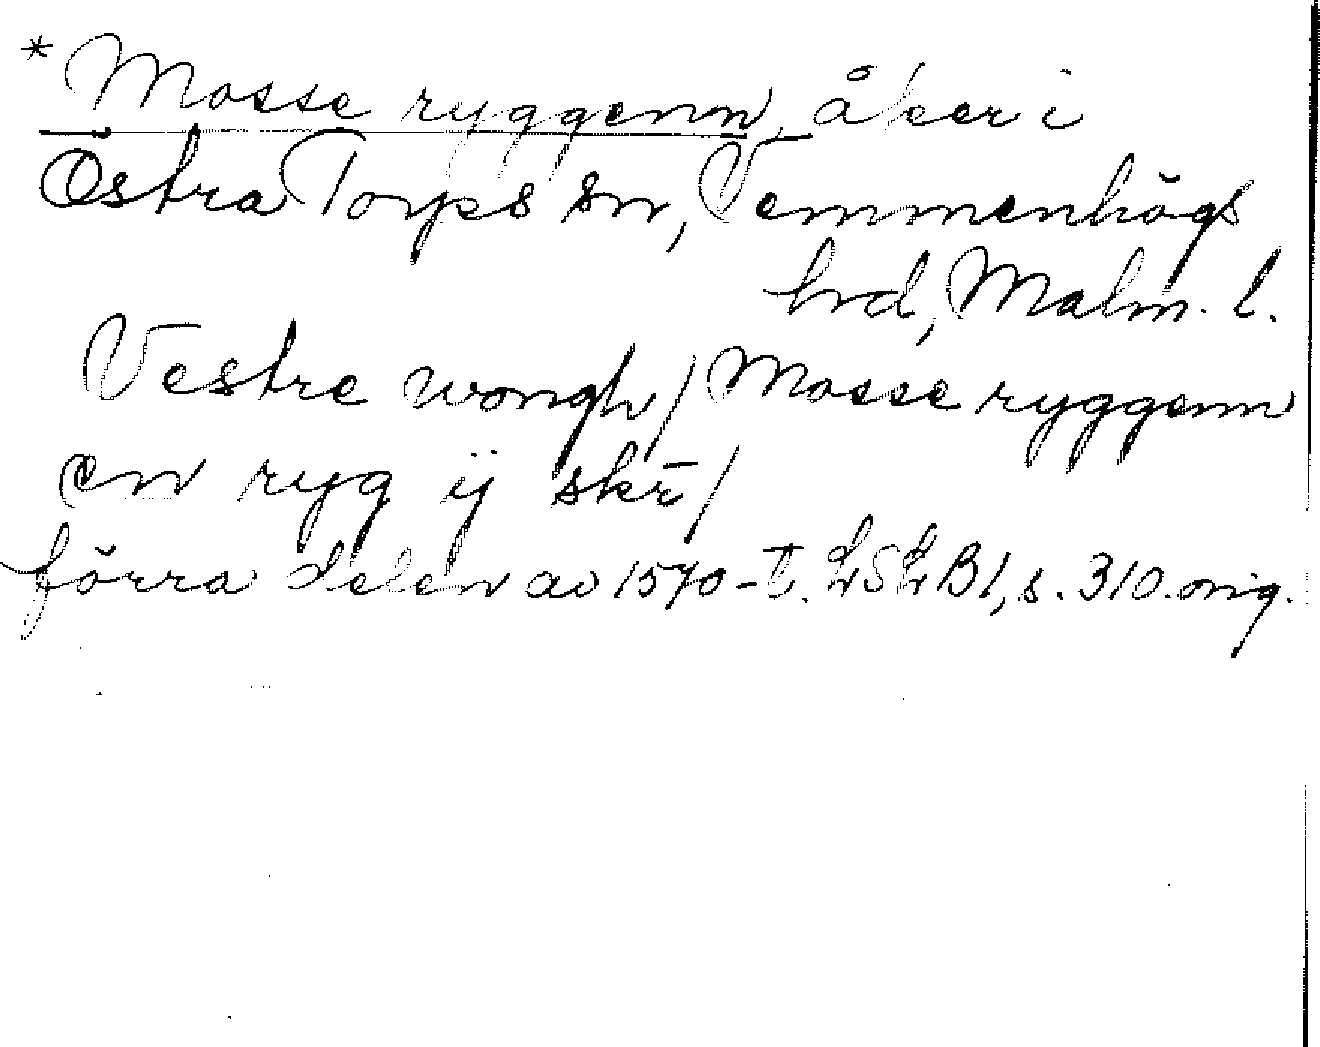 * Mosse ryggenn, åker i
Östra Torps sn, Vemmenhögs
hrd, Malm. l.
Vestre wongh / Mosse ryggenn
en ryg ij skr̄ /
förra delen av 1570-t. LSLB I, s. 310. orig.